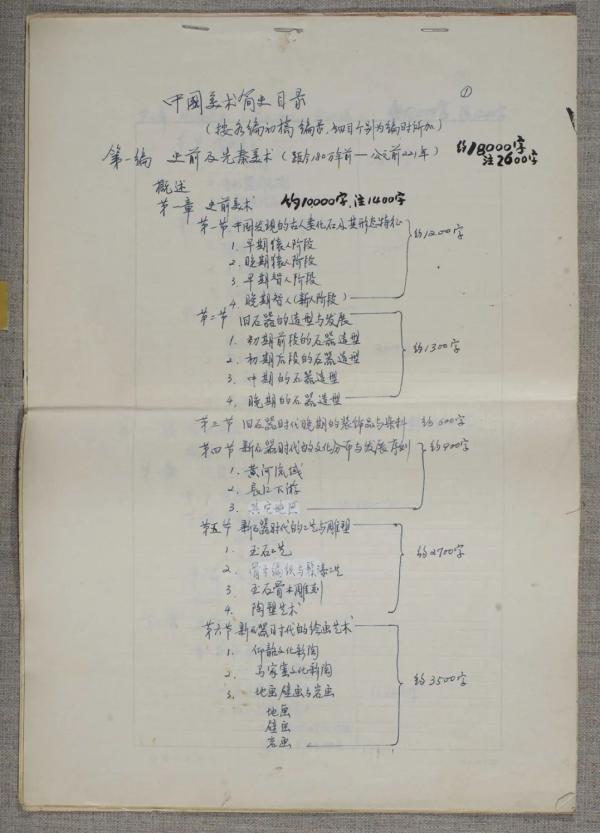 ①
中國美术简史目录
(按各编初稿编录,细目个别为编时所加)
第一编 史前及先秦美术(距今180万年前—公元前221年) 约18000字
注2600字
概述
第一章 史前美术 约10000字,注1400字
第一节 中国发现的古人类化石及其形态特征
1. 早期猿人阶段 约1200字
2. 晚期猿人阶段
3. 早期智人阶段
4. 晚期智人(新人阶段)
第二节 旧石器的造型与发展
1. 初期前段的石器造型
2. 初期后段的石器造型 约1300字
3. 中期的石器造型
4. 晚期的石器造型
第三节 旧石器时代晚期的装饰品与染料 约600字
第四节 新石器时代的文化分布与发展序列 约900字
1. 黄河流域
2. 长江下游
3. 其它地区
第五节 新石器时代的工艺与雕塑
1. 玉石工艺 约2700字
2. 骨牙编织与髹漆工艺
3. 玉石骨木雕刻
4. 陶塑艺术
第六节 新石器时代的绘画艺术
1. 仰韶文化彩陶
2. 马家窑文化彩陶
3. 地画壁画与岩画 约3500字
地画
壁画
岩画